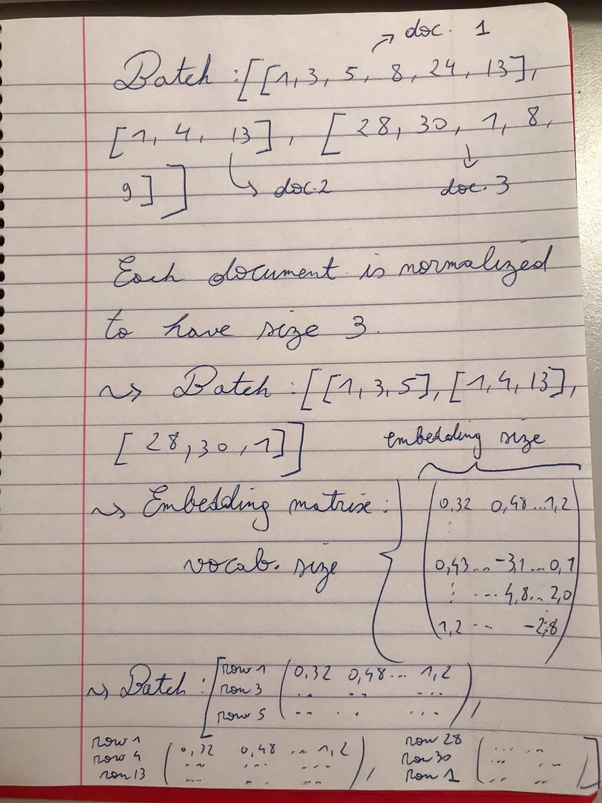 ↗ doc. 1
Batch : [[1, 3, 5, 8, 24, 13],
[1, 4, 13], [28, 30, 1, 8,
9]]
↳ doc. 2
↳ doc. 3
Each document is normalized
to have size 3.
⤳ Batch : [[1, 3, 5], [1, 4, 13],
[28, 30, 1]]
embedding size
⤳ Embedding matrix :
vocab. size
0,32 0,48 ... 1,2
⋮
0,43 ... -3,1 ... 0,1
⋮ ... 4,8 .. 2,0
1,2 ... -2,8
⤳ Batch : [ row 1 ( 0,32 0,48 ... 1,2
row 3 .. .. ...
row 5 .. .. ... ) ,
row 1
row 4 ( 0,32 0,48 ... 1,2
row 13 .. ... ... ) ,
row 28
row 30 ( ... ...
row 1 .. .. .. ) ]